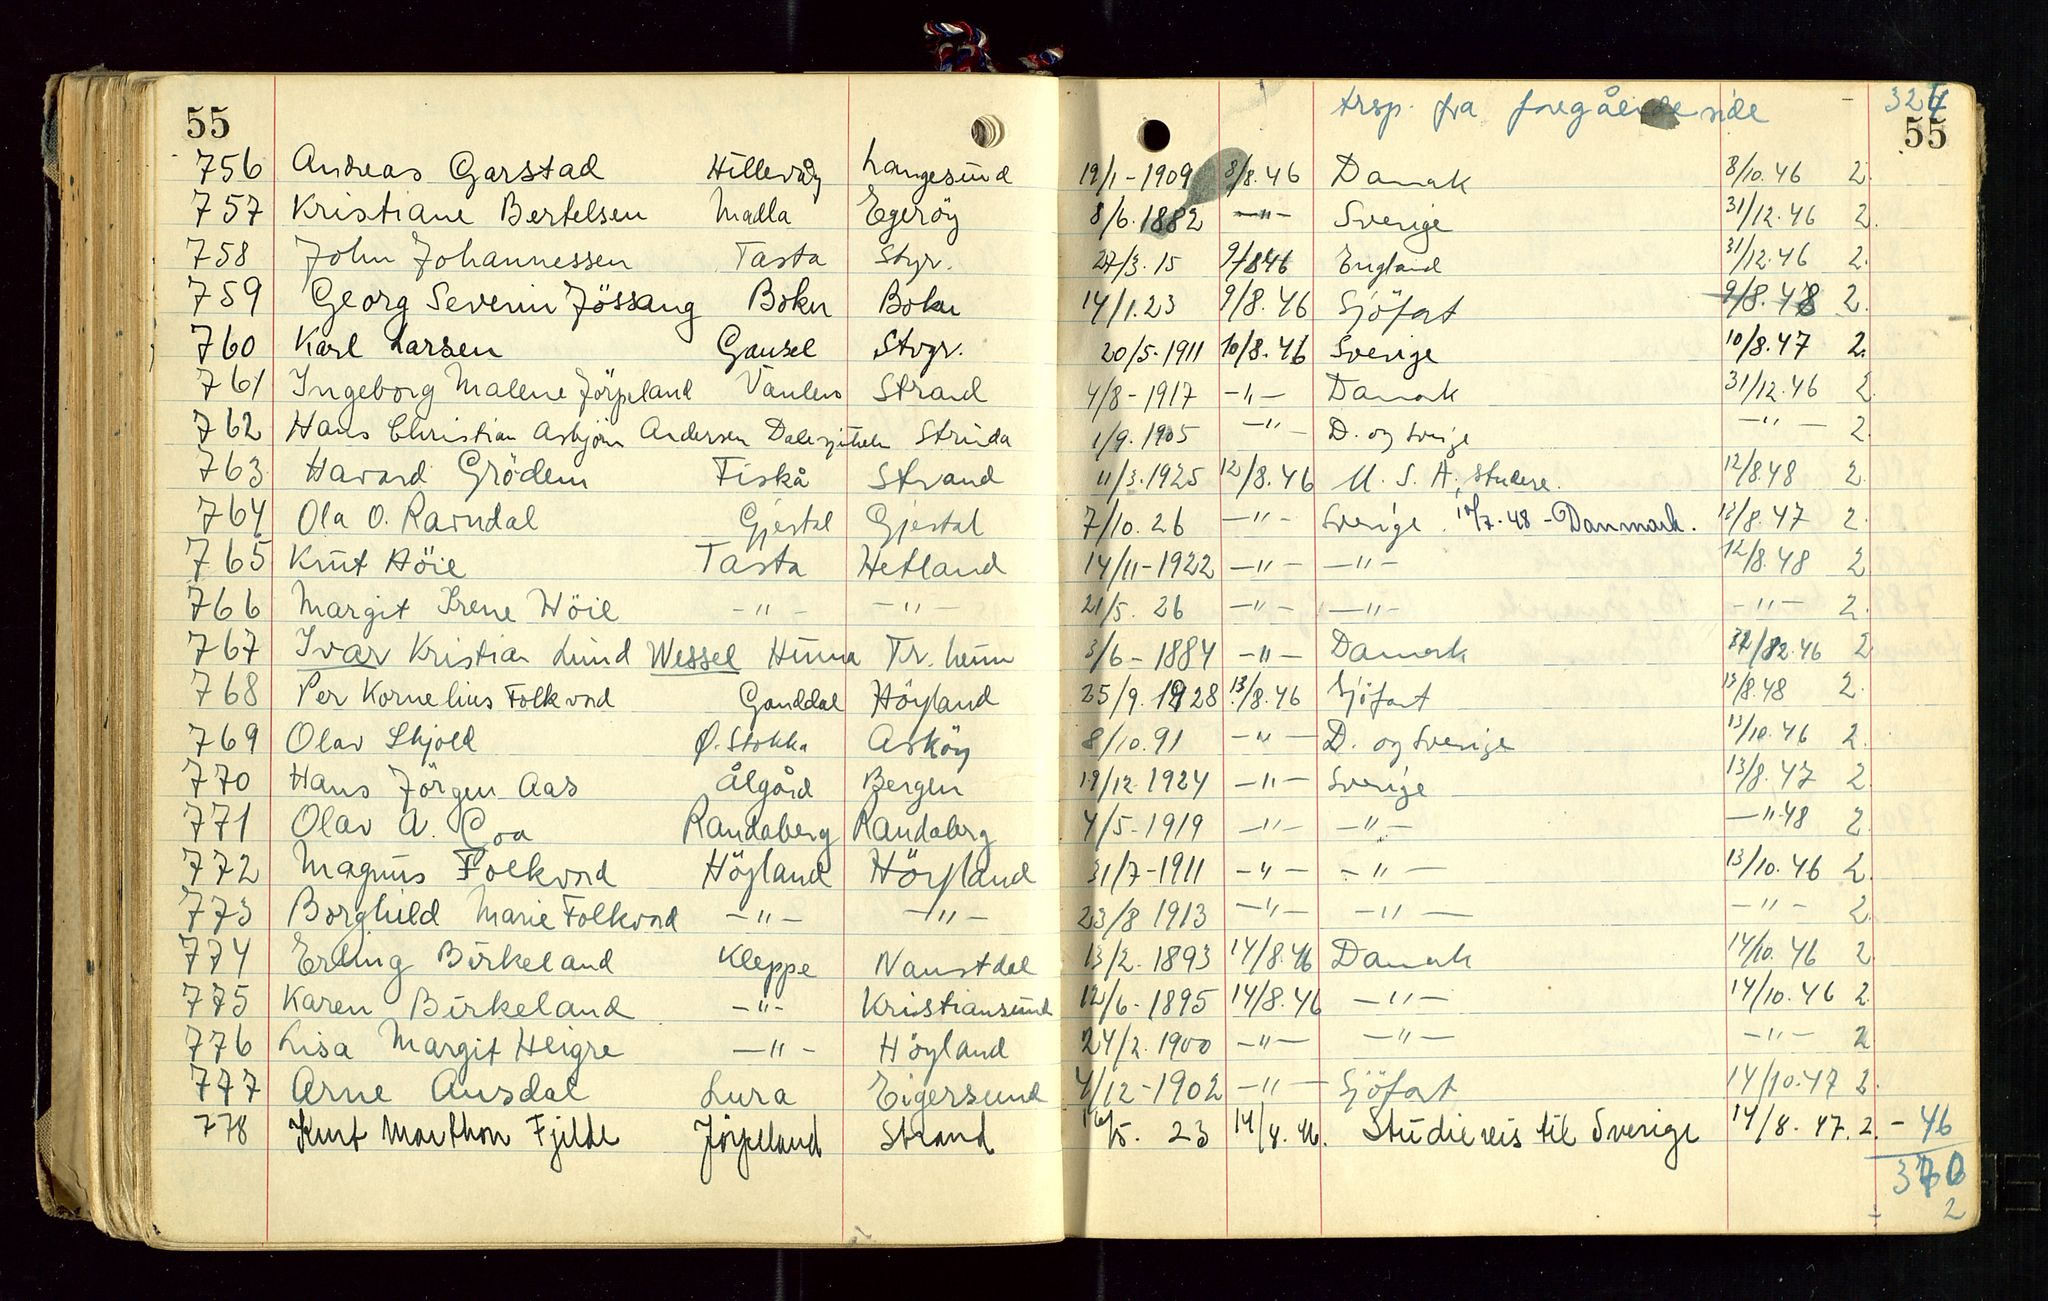 55
trsp. fra foregående side 324
55
756 Andreas Garstad Hillevåg Langesund 19/1-1909 8/8.46 Danmark 8/10.46 2.
757 Kristiane Bertelsen Madla Egeröy 8/6.1882 -"- Sverige 31/12.46 2.
758 John Johannessen Tasta Stgr. 27/3.15 9/8 46 England 31/12.46 2.
759 Georg Severin Jössang Bokn Bokn 14/1.23 9/8.46 Sjöfart 9/8.48 2.
760 Karl Larsen Gausel Stvgr. 20/5-1911 10/8.46 Sverige 10/8.47 2.
761 Ingeborg Malene Jörpeland Vaulen Strand 4/8-1917 -"- Danmark 31/12.46 2.
762 Hans Christian Asbjörn Andersen Strinda 1/9.1905 -"- D. og Sverige -"- 2.
763 Havard Grödem Fiskå Strand 11/3.1925 12/8.46 U.S.A., studere. 12/8.48 2.
764 Ola O. Ravndal Gjestal Gjestal 7/10.26 -"- Sverige. 10/7.48 - Danmark. 12/8.47 2.
765 Knut Höie Tasta Hetland 14/11-1922 -"- -"- 12/8.48 2
766 Margit Irene Höie -"- -"- 21/5.26 -"- -"- -"- 2.
767 Ivar Kristian Lund Wessel Hinna Tr.heim 3/6-1884 -"- Danmark 31/12.46 2
768 Per Kornelius Folkvord Ganddal Höyland 25/9.1928 13/8.46 Sjöfart 13/8.48 2.
769 Olav Skjold Ø. Stokka Asköy 8/10.91 -"- D. og Sverige 13/10.46 2.
770 Hans Jörgen Aas Ålgård Bergen 19/12.1924 -"- Sverige 13/8.47 2
771 Olav A. Goa Randaberg Randaberg 4/5-1919 -"- -"- -"-48 2
772 Magnus Folkvord Höyland Höyland 31/7-1911 -"- -"- 13/10.46 2.
773 Borghild Marie Folkvord -"- -"- 23/8 1913 -"- -"- -"- 2.
774 Erling Birkeland Kleppe Naustdal 13/2.1893 14/8.46 Danmark 14/10.46 2
775 Karen Birkeland -"- Kristiansund 12/6-1895 14/8.46 -"- 14/10.46 2.
776 Lisa Margit Heigre -"- Höyland 24/2.1900 -"- -"- -"- 2
777 Arne Ausdal Lura Eigersund 4/12-1902 -"- Sjöfart 14/10.47 2.
778 Knut Marthon Fjelde Jörpeland Strand 16/5.23 14/8.46. Studiereis til Sverige 14/8.47. 2. - 46
370
2